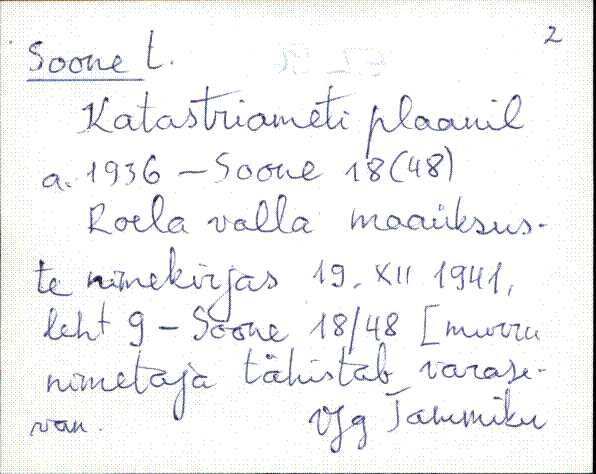 2
Soone t.
Katastriameti plaanil
a. 1936 – Soone 18(48)
Roela valla maaüksus-
te nimekirjas 19. XII 1941,
leht 9 – Soone 18/48 [murru
nimetaja tähistab varase-
Vjg Tammiku